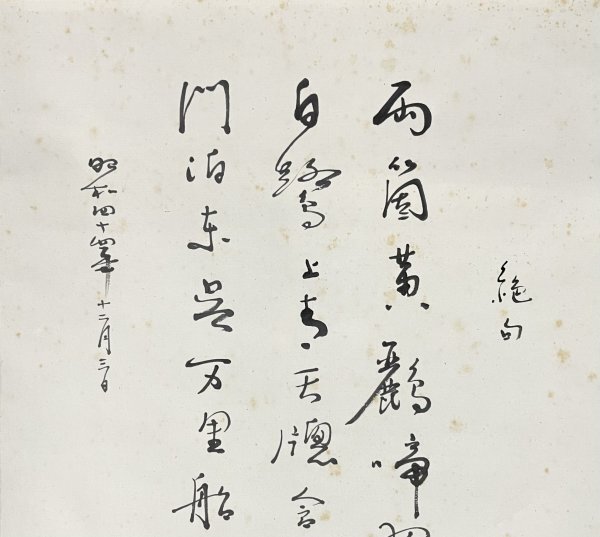 絶句
両箇黄鸝啼
白鷺上青天牕含
門泊東呉万里船
昭和四十四年十二月三日